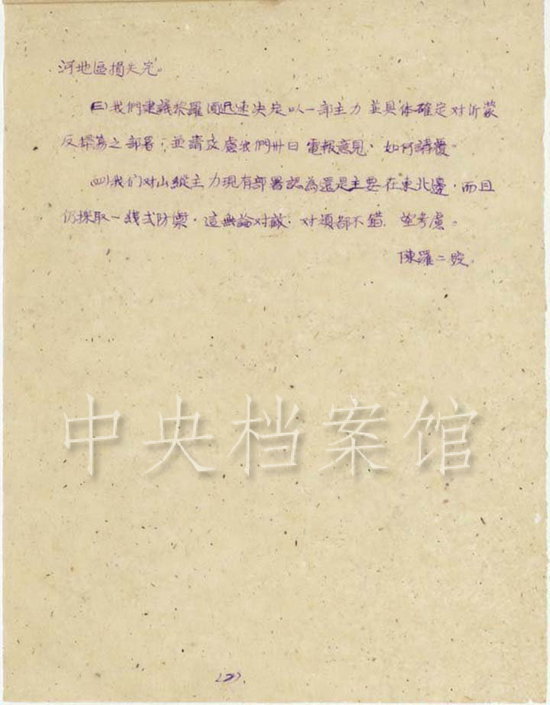 河地區損失完。
㈢我們建議黎羅 迅速决定以一部主力並具体確定对沂蒙
反掃蕩之部署；並請攷慮我們卅日電報意見，如何請覆。
㈣我们对山縱主力現有部署認為還是主要在東北邊，而且
仍採取一綫式防禦，這無論对敵，对頑都不 ，望考慮。
陳羅二
中央档案馆
(2).